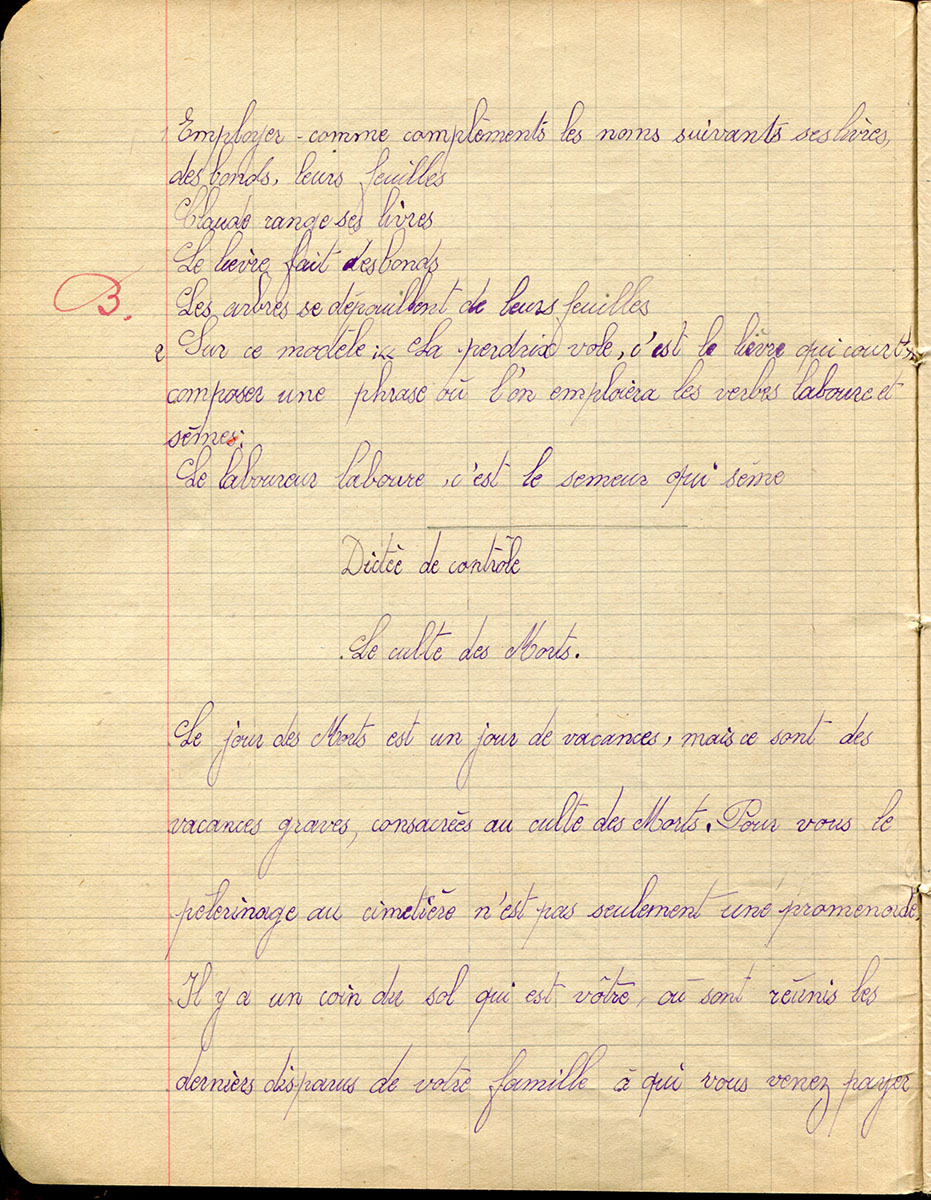 1 Employer - comme complèments les noms suivants ses livres,
des bonds, leurs feuilles
Claude range ses livres
Le lièvre fait des bonds
B. Les arbres se dépouillent de leurs feuilles
2 Sur ce modèle : « La perdrix vole, c'est le lièvre qui court »
composer une phrase où l'on emploiera les verbes laboure et
sèmes:
Le laboureur laboure, c'est le semeur qui sème
Dictée de contrôle
Le culte des Morts.
Le jour des Morts est un jour de vacances, mais ce sont des
vacances graves, consacrées au culte des Morts. Pour vous le
pèlerinage au cimetière n'est pas seulement une promenade.
Il y a un coin du sol qui est vôtre, où sont réunis les
derniers disparus de votre famille à qui vous venez payer